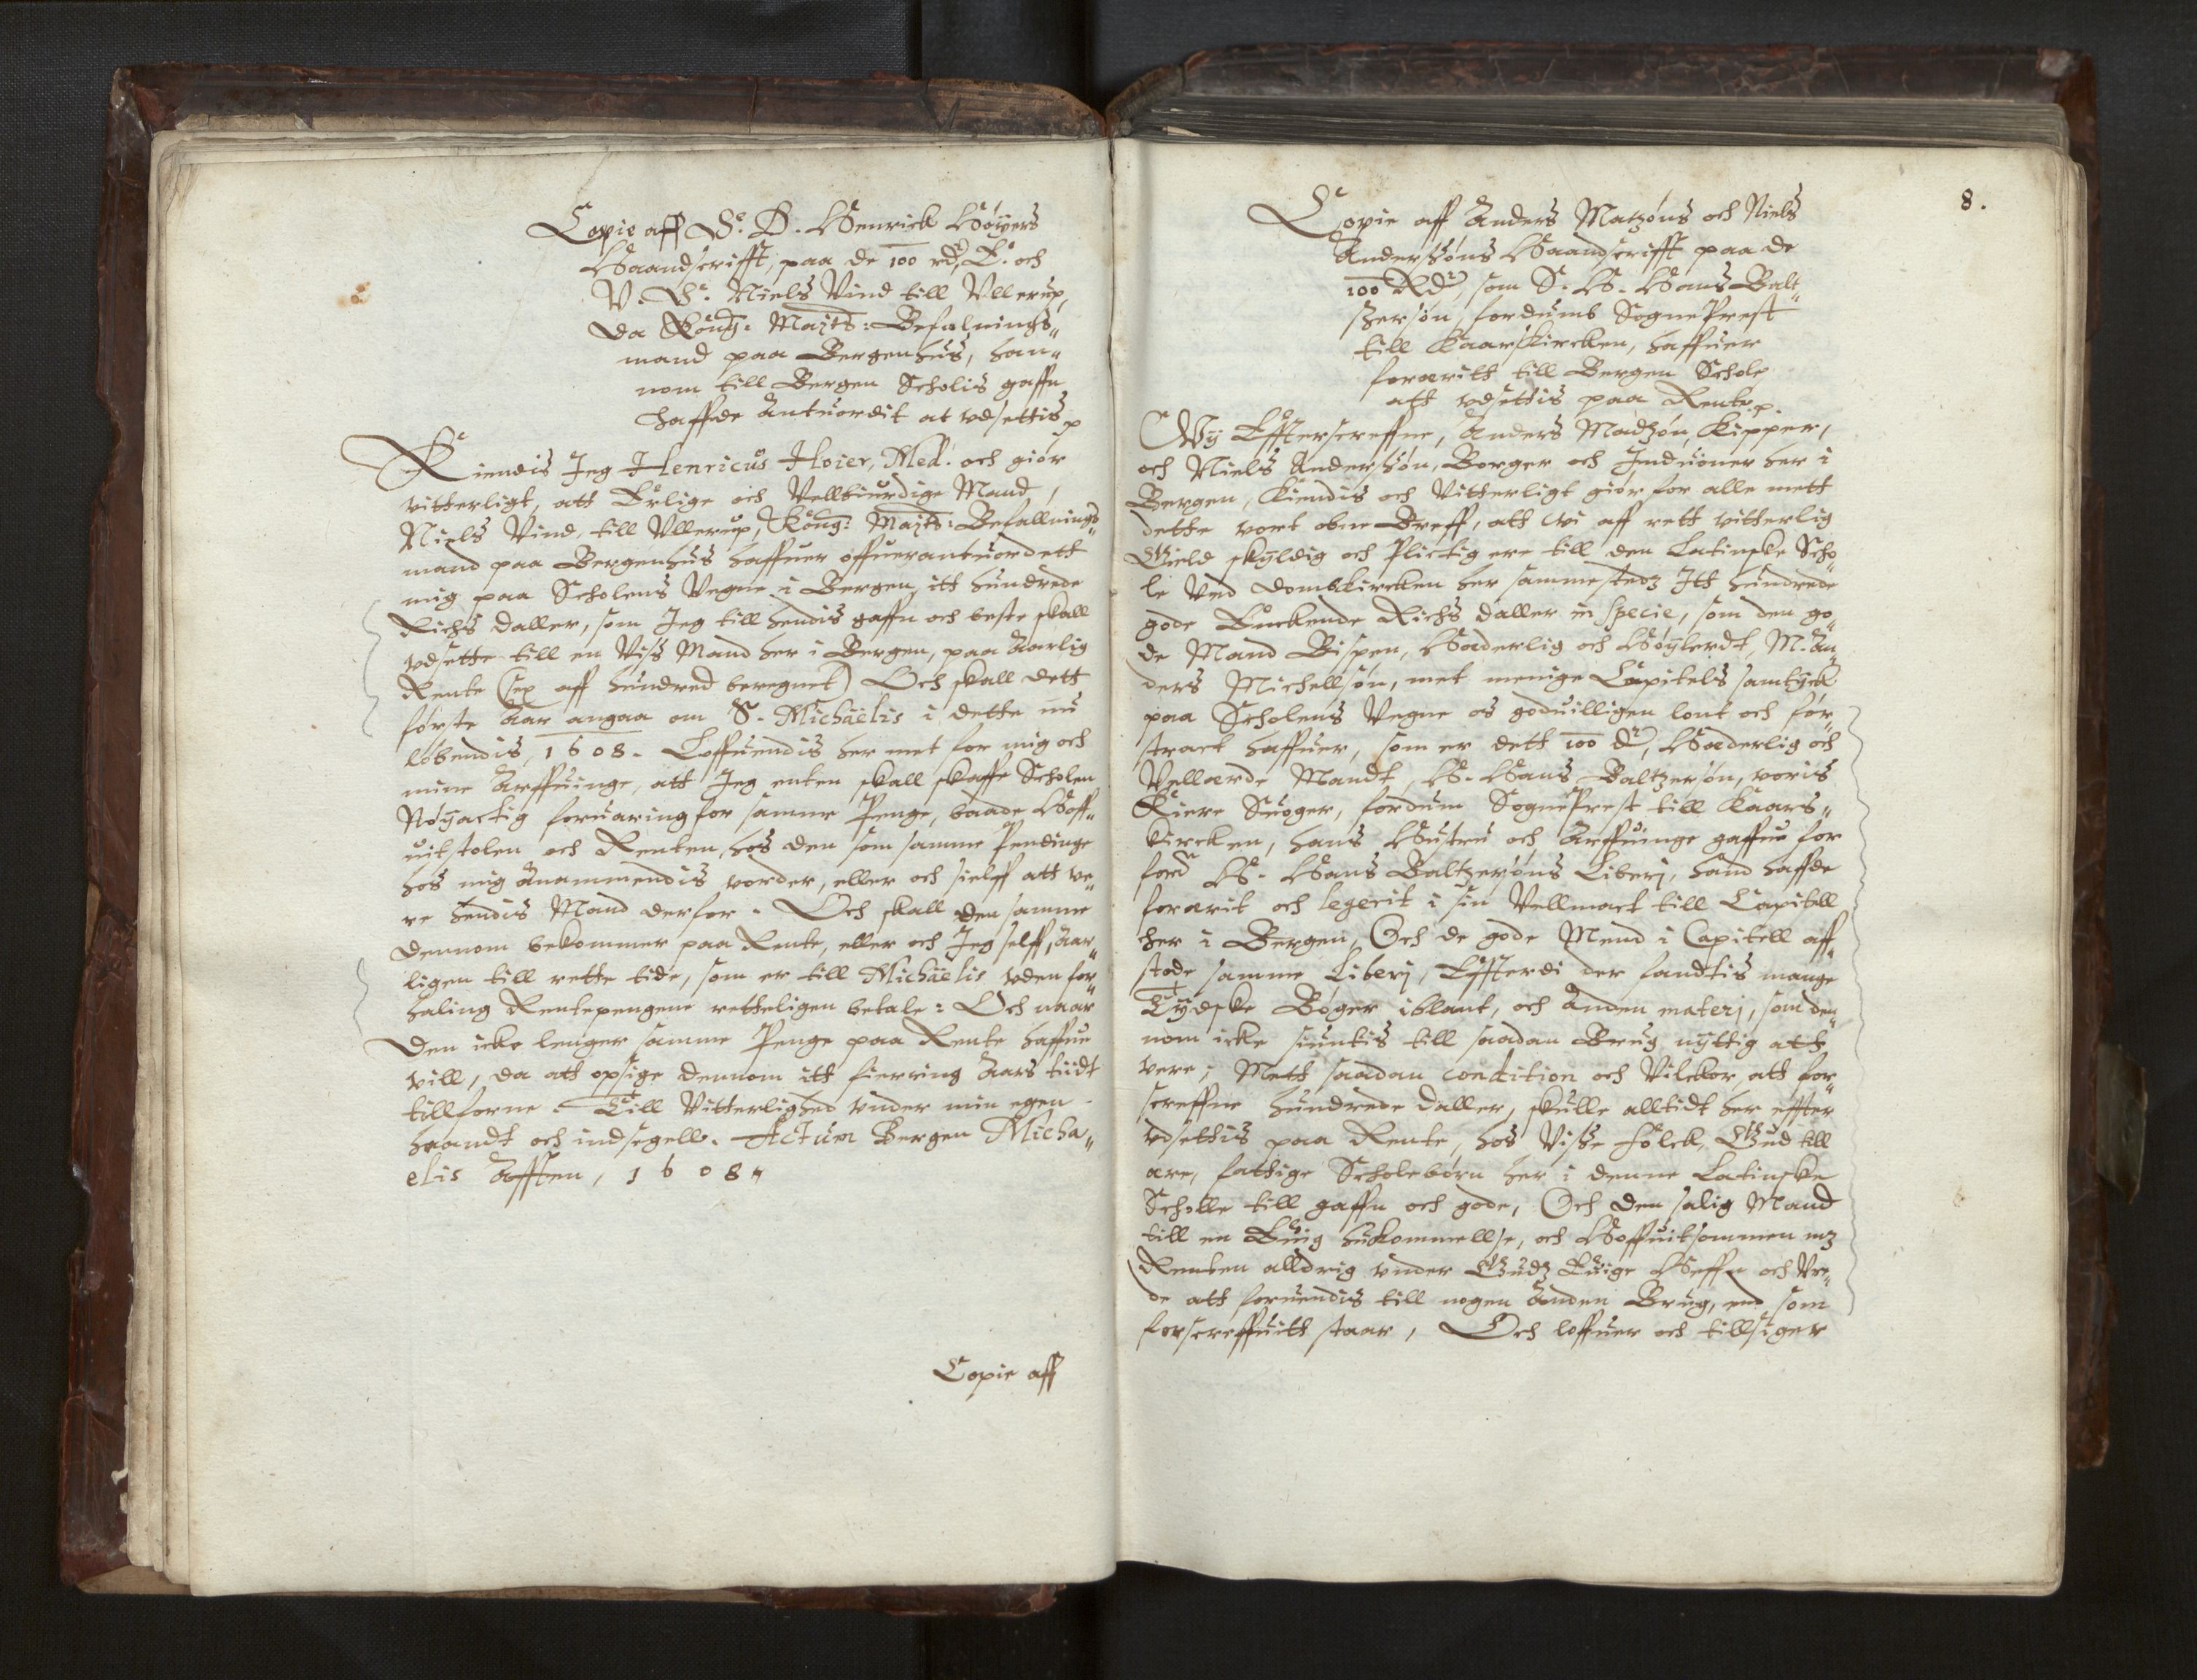 Copie aff S. D. Henrick Høyers
Haandscrifft, paa de 100 rd, E. och
V. S. Niels Vind till Vllerup,
da Kong: Majts: Befalnings„
mand paa Bergenhus, han„
nom till Bergen Scholis gaffn
haffde Antuordit at vdsettis
Kiendis Jeg Henricus Hoier, Med. och giør
vitterligt, att Erlige och Velbiurdige Mand,
Niels Vind, till Vllerup, Kong: Majts: Befallnings„
mand paa Bergenhus haffuer offuerantuordett
mig paa Scholens Vegne i Bergen itt hundrede
Richs daller, som Jeg till hendis gaffn och beste skall
vdsette till en Viss Mand her i Bergen, paa Aarlig
Rente (sex aff hundred beregnet) Och skall dett
første Aar angaa om S. Michaelis i dette nu
løbendis, 1608. Loffuendis her met for mig och
mine Arffuinge, att Jeg enten skall skaffe Scholen
Nøyactig foruaring for samme Penge, baade Hoff„
uitstolen och Renten, hos den som samme Pendinge
hos mig Anammendis vorder, eller och sielff att ve„
re hendis Mand derfor. Och skall den samme
dennom bekommer paa Rente, eller och Jeg self, Aar„
ligen till rette tide, som er till Michaelis vden for„
haling Rentepengene retteligen betale: Och naar
den icke lenger samme Penge paa Rente haffue
vill, da att opsige dennom itt fierring Aars tiidt
tillforne. Till Vitterlighed vnder min egen
haandt och indsegell. Actum Bergen Micha„
elis Afften, 1608
Copie aff
8.
Copie aff Anders Matzøns och Niels
Andersøns Haandscrifft paa de
100 Rdr, som S. H. Hans Balt„
zersøn, fordumb SognePrest
till Kaarskircken, haffuer
foræritt till Bergen Schole
att vdsettis paa Rente.
Wij Effterscreffne, Anders Madzøn, Kipper,
och Niels Andersøn, Borger och Induoner her i
Bergen, Kiendis och Vitterligt giør for alle mett
dette vort obne Breff, att wi aff rett vitterlig
Gield skyldig och Plictig ere till den Latinske Scho„
le Ved Domkircken her sammestedz Itt hundrede
gode Enckende Richs daller in specie, som den go„
de Mand Bispen, Hæderlig och Høylerdt, M. An„
ders Michellsøn, met menige Capitels samtyck
paa Scholens Vegne os goduilligen lont och for„
stract haffuer, som er dett 100 dr, Hæderlig och
Vellærde Mandt, H. Hans Baltzersøn, voris
Kiere Suoger, fordum SognePrest till Kaars„
kircken, hans Hustru och Arffuinge gaffue for
ford H. Hans Baltzersøns Liberj, hand haffde
forærit och legerit i sin Vellmact till Capitell
her i Bergen, Och de gode Mend i Capitell aff„
stode samme Liberj, Effterdi der fandtis mange
Tydske Bøger iblant, och Anden materj, som den„
nom icke siuntis till saadan Brug nyttig att
vere; Mett saadan condition och Vilckor, att for„
screffne hundrede Daller, skulle alltidt her effter
vdsettis paa Rente, hos Visse folck, Gud till
ære, fattige Scholebørn her i denne Latinske
Scholle till gaffn och gode, Och den salig Mand
till en Euig hukommellse, och Hoffuitsommen mz
Renten alldrig vnder Gudz Euige Heffn och Vre„
de att foruendis till nogen Anden Brug, end som
forscreffuitt staar, Och loffuer och tillsiger